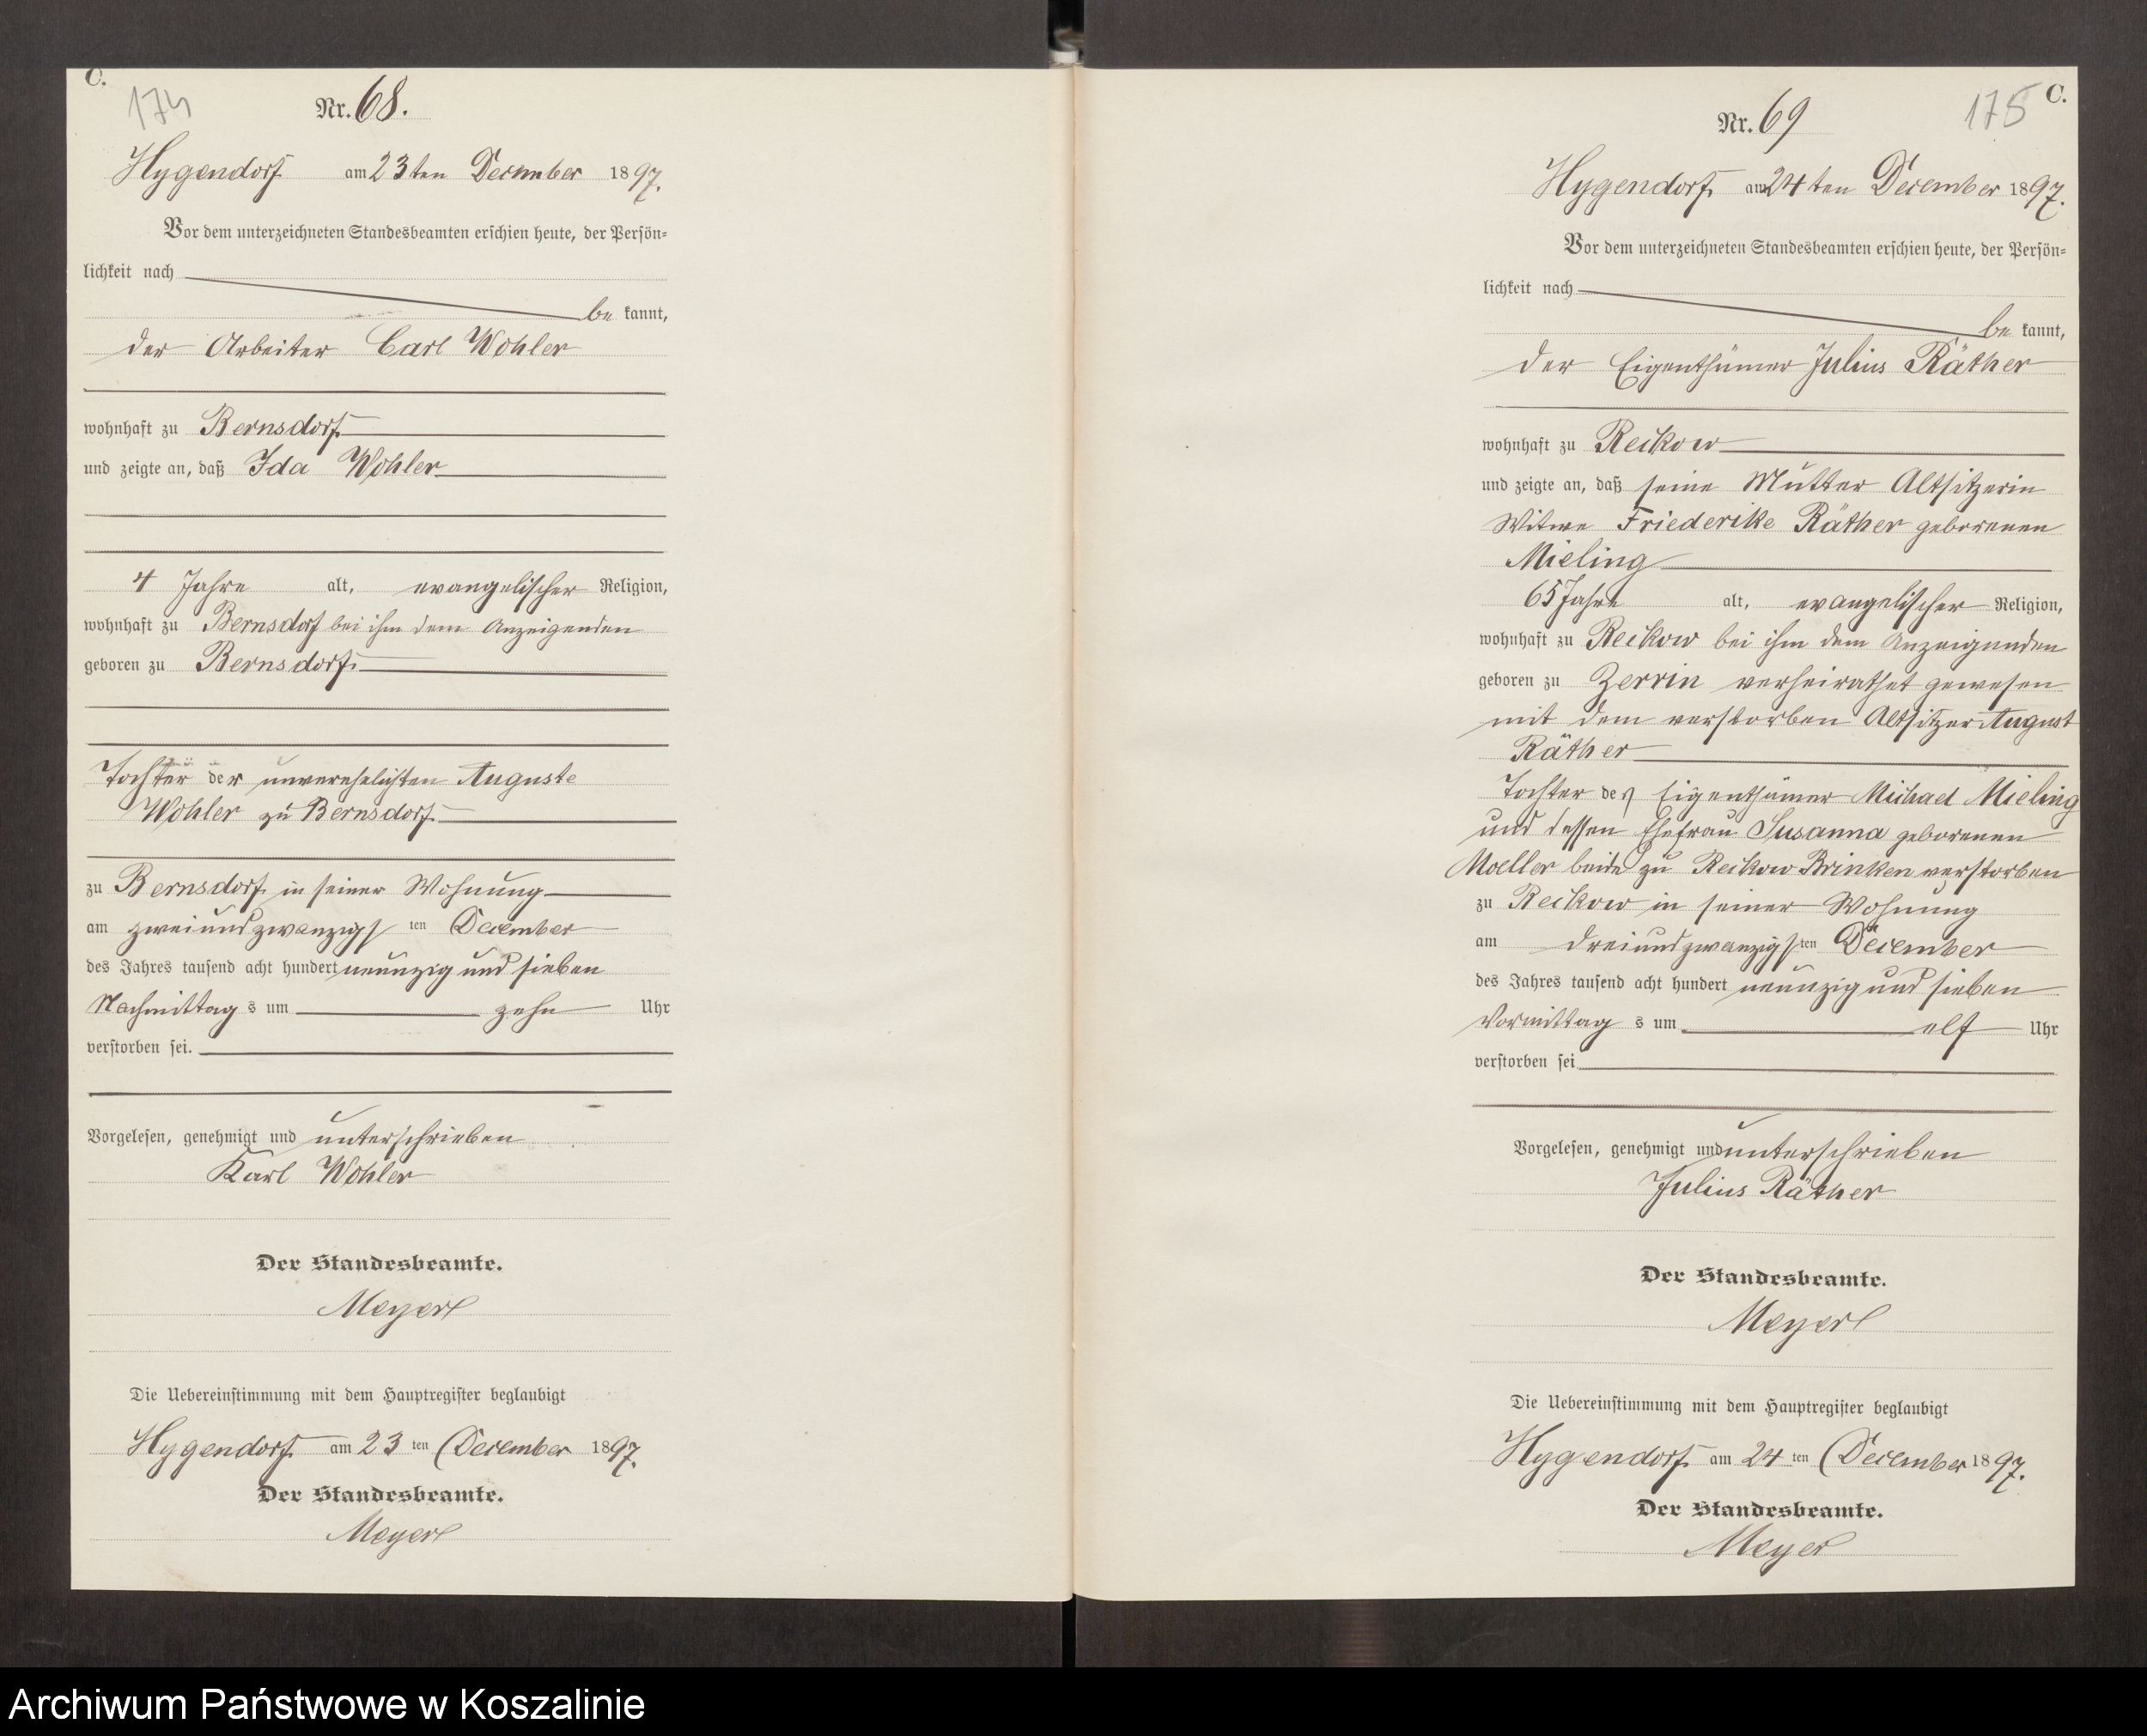 C.
174
Nr. 68.
Hygendorf am 23ten December 1897.
Vor dem unterzeichneten Standesbeamten erschien heute, der Persön=
lichkeit nach
be kannt,
der Arbeiter Carl Wohler
wohnhaft zu Bernsdorf
und zeigte an, daß Ida Wohler
4 Jahre alt, evangelischer Religion,
wohnhaft zu Bernsdorf bei ihm dem Anzeigenden
geboren zu Bernsdorf
Tochter der unverehelichten Auguste
Wohler zu Bernsdorf
zu Bernsdorf in seiner Wohnung
am zweiundzwanzigsten December
des Jahres tausend acht hundert neunzig und sieben
Nachmittags um zehn Uhr
verstorben sei.
Vorgelesen, genehmigt und unterschrieben
Karl Wohler
Der Standesbeamte.
Meyer
Die Uebereinstimmung mit dem Hauptregister beglaubigt
Hygendorf am 23ten December 1897.
Der Standesbeamte.
Meyer
C.
175
Nr. 69
Hygendorf am 24ten December 1897.
Vor dem unterzeichneten Standesbeamten erschien heute, der Persön=
lichkeit nach
be kannt,
der Eigenthümer Julius Räther
wohnhaft zu Reikow
und zeigte an, daß seine Mutter Altsitzerin
Witwe Friederike Räther geborenen
Mieling
65 Jahre alt, evangelischer Religion,
wohnhaft zu Reikow bei ihm dem Anzeigenden
geboren zu Zerrin verheirathet gewesen
mit dem verstorben Altsitzer August
Räther
Tochter des Eigenthümer Michael Mieling
und dessen Ehefrau Susanna geborenen
Moeller beide zu Reikow Brinken verstorben
zu Reikow in seiner Wohnung
am dreiundzwanzigsten December
des Jahres tausend acht hundert neunzig und sieben
Vormittags um elf Uhr
verstorben sei
Vorgelesen, genehmigt und unterschrieben
Julius Räther
Der Standesbeamte.
Meyer
Die Uebereinstimmung mit dem Hauptregister beglaubigt
Hygendorf am 24ten December 1897.
Der Standesbeamte.
Meyer
Archiwum Państwowe w Koszalinie